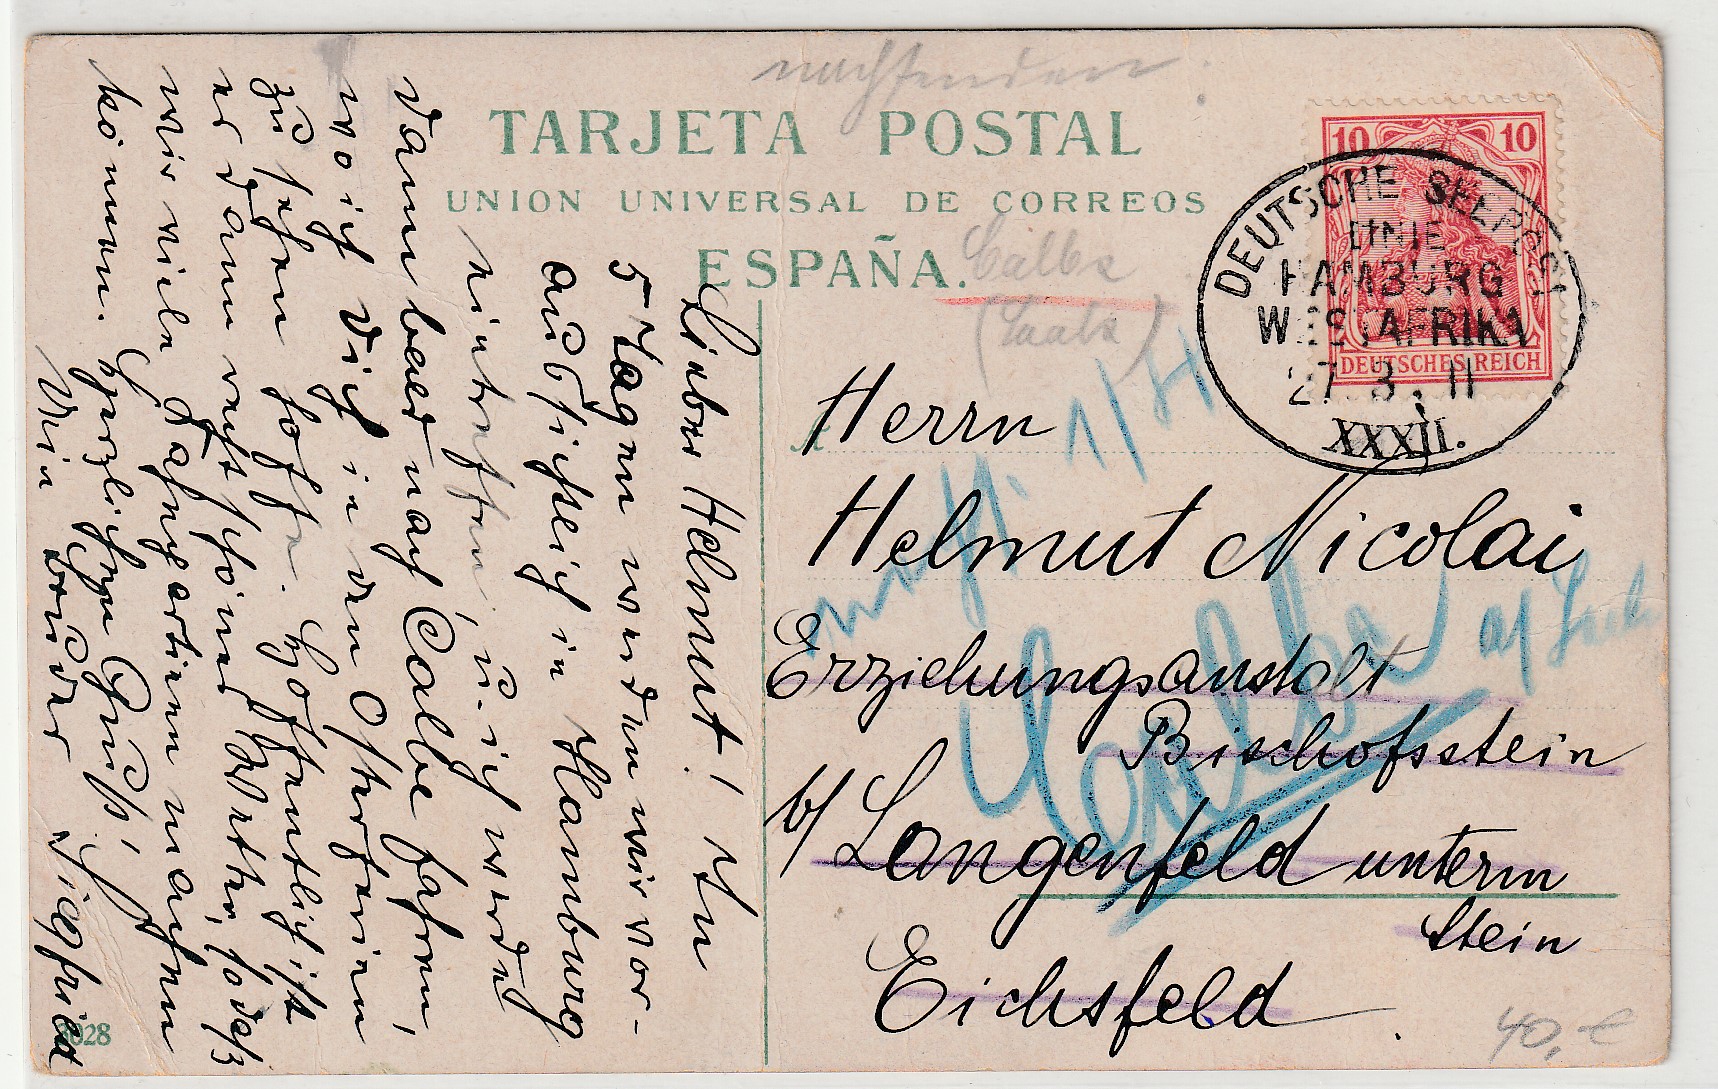 nachsenden.
TARJETA POSTAL
UNION UNIVERSAL DE CORREOS
ESPAÑA.
Calbe
(Saale)
10 10
DEUTSCHES REICH
DEUTSCHE SEEPOST
LINIE
HAMBURG
WESTAFRIKA
27 3. 11
XXXII.
Lieber Helmut! In
5 Tagen werden wir vor-
aussichtlich in Hamburg
eintreffen, u. ich werde
dann bald nach Calbe fahren,
wo ich Dich in den Osterferien
zu sehen hoffe. Hoffentlich ist
es dann recht schönes Wetter, sodaß
wir viele Radpartieen machen
können. Herzlichen Gruß!
Dein Bruder Siegfried
Herrn
Helmut Nicolai
Erziehungsanstalt
Bischofsstein
b/ Langenfeld unterm
Stein
Eichsfeld.
1/4
Calbe
a/ Saale
3028
40,-€